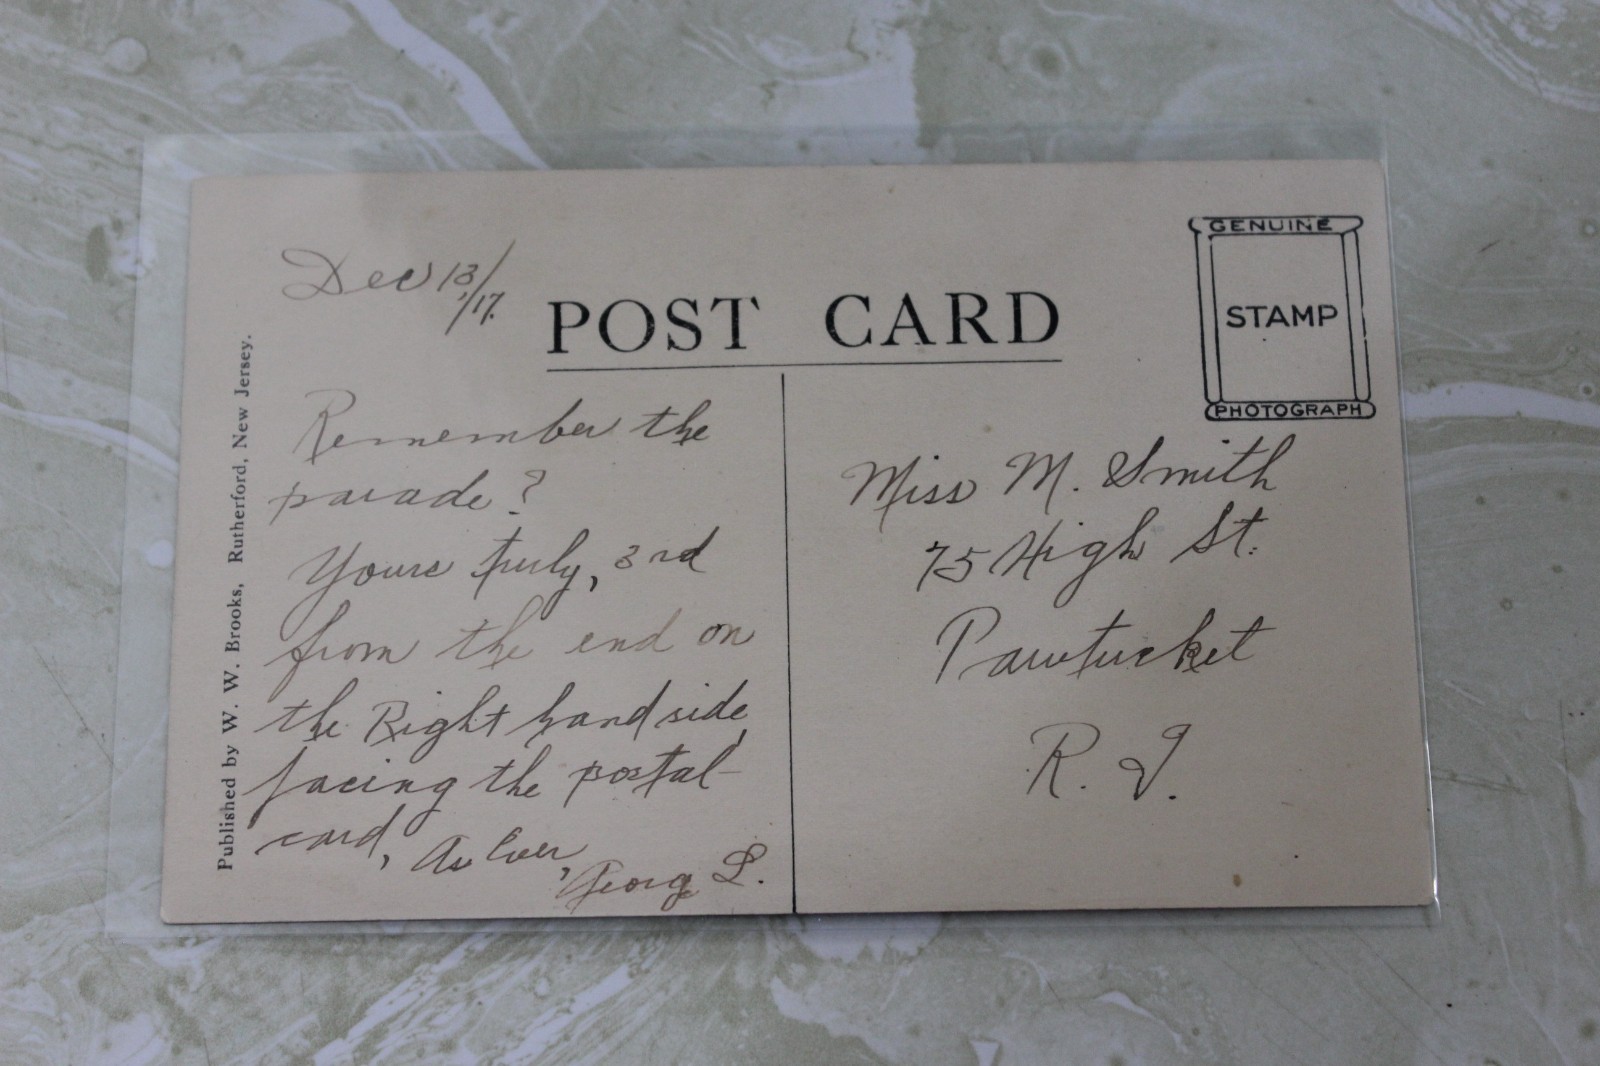 Dec 13/17.
POST CARD
GENUINE
STAMP
PHOTOGRAPH
Published by W. W. Brooks, Rutherford, New Jersey.
Remember the
parade?
Yours truly, 3rd
from the end on
the Right hand side,
facing the postal-
card, As Ever,
Georg L.
Miss M. Smith
75 High St.
Pawtucket
R. I.